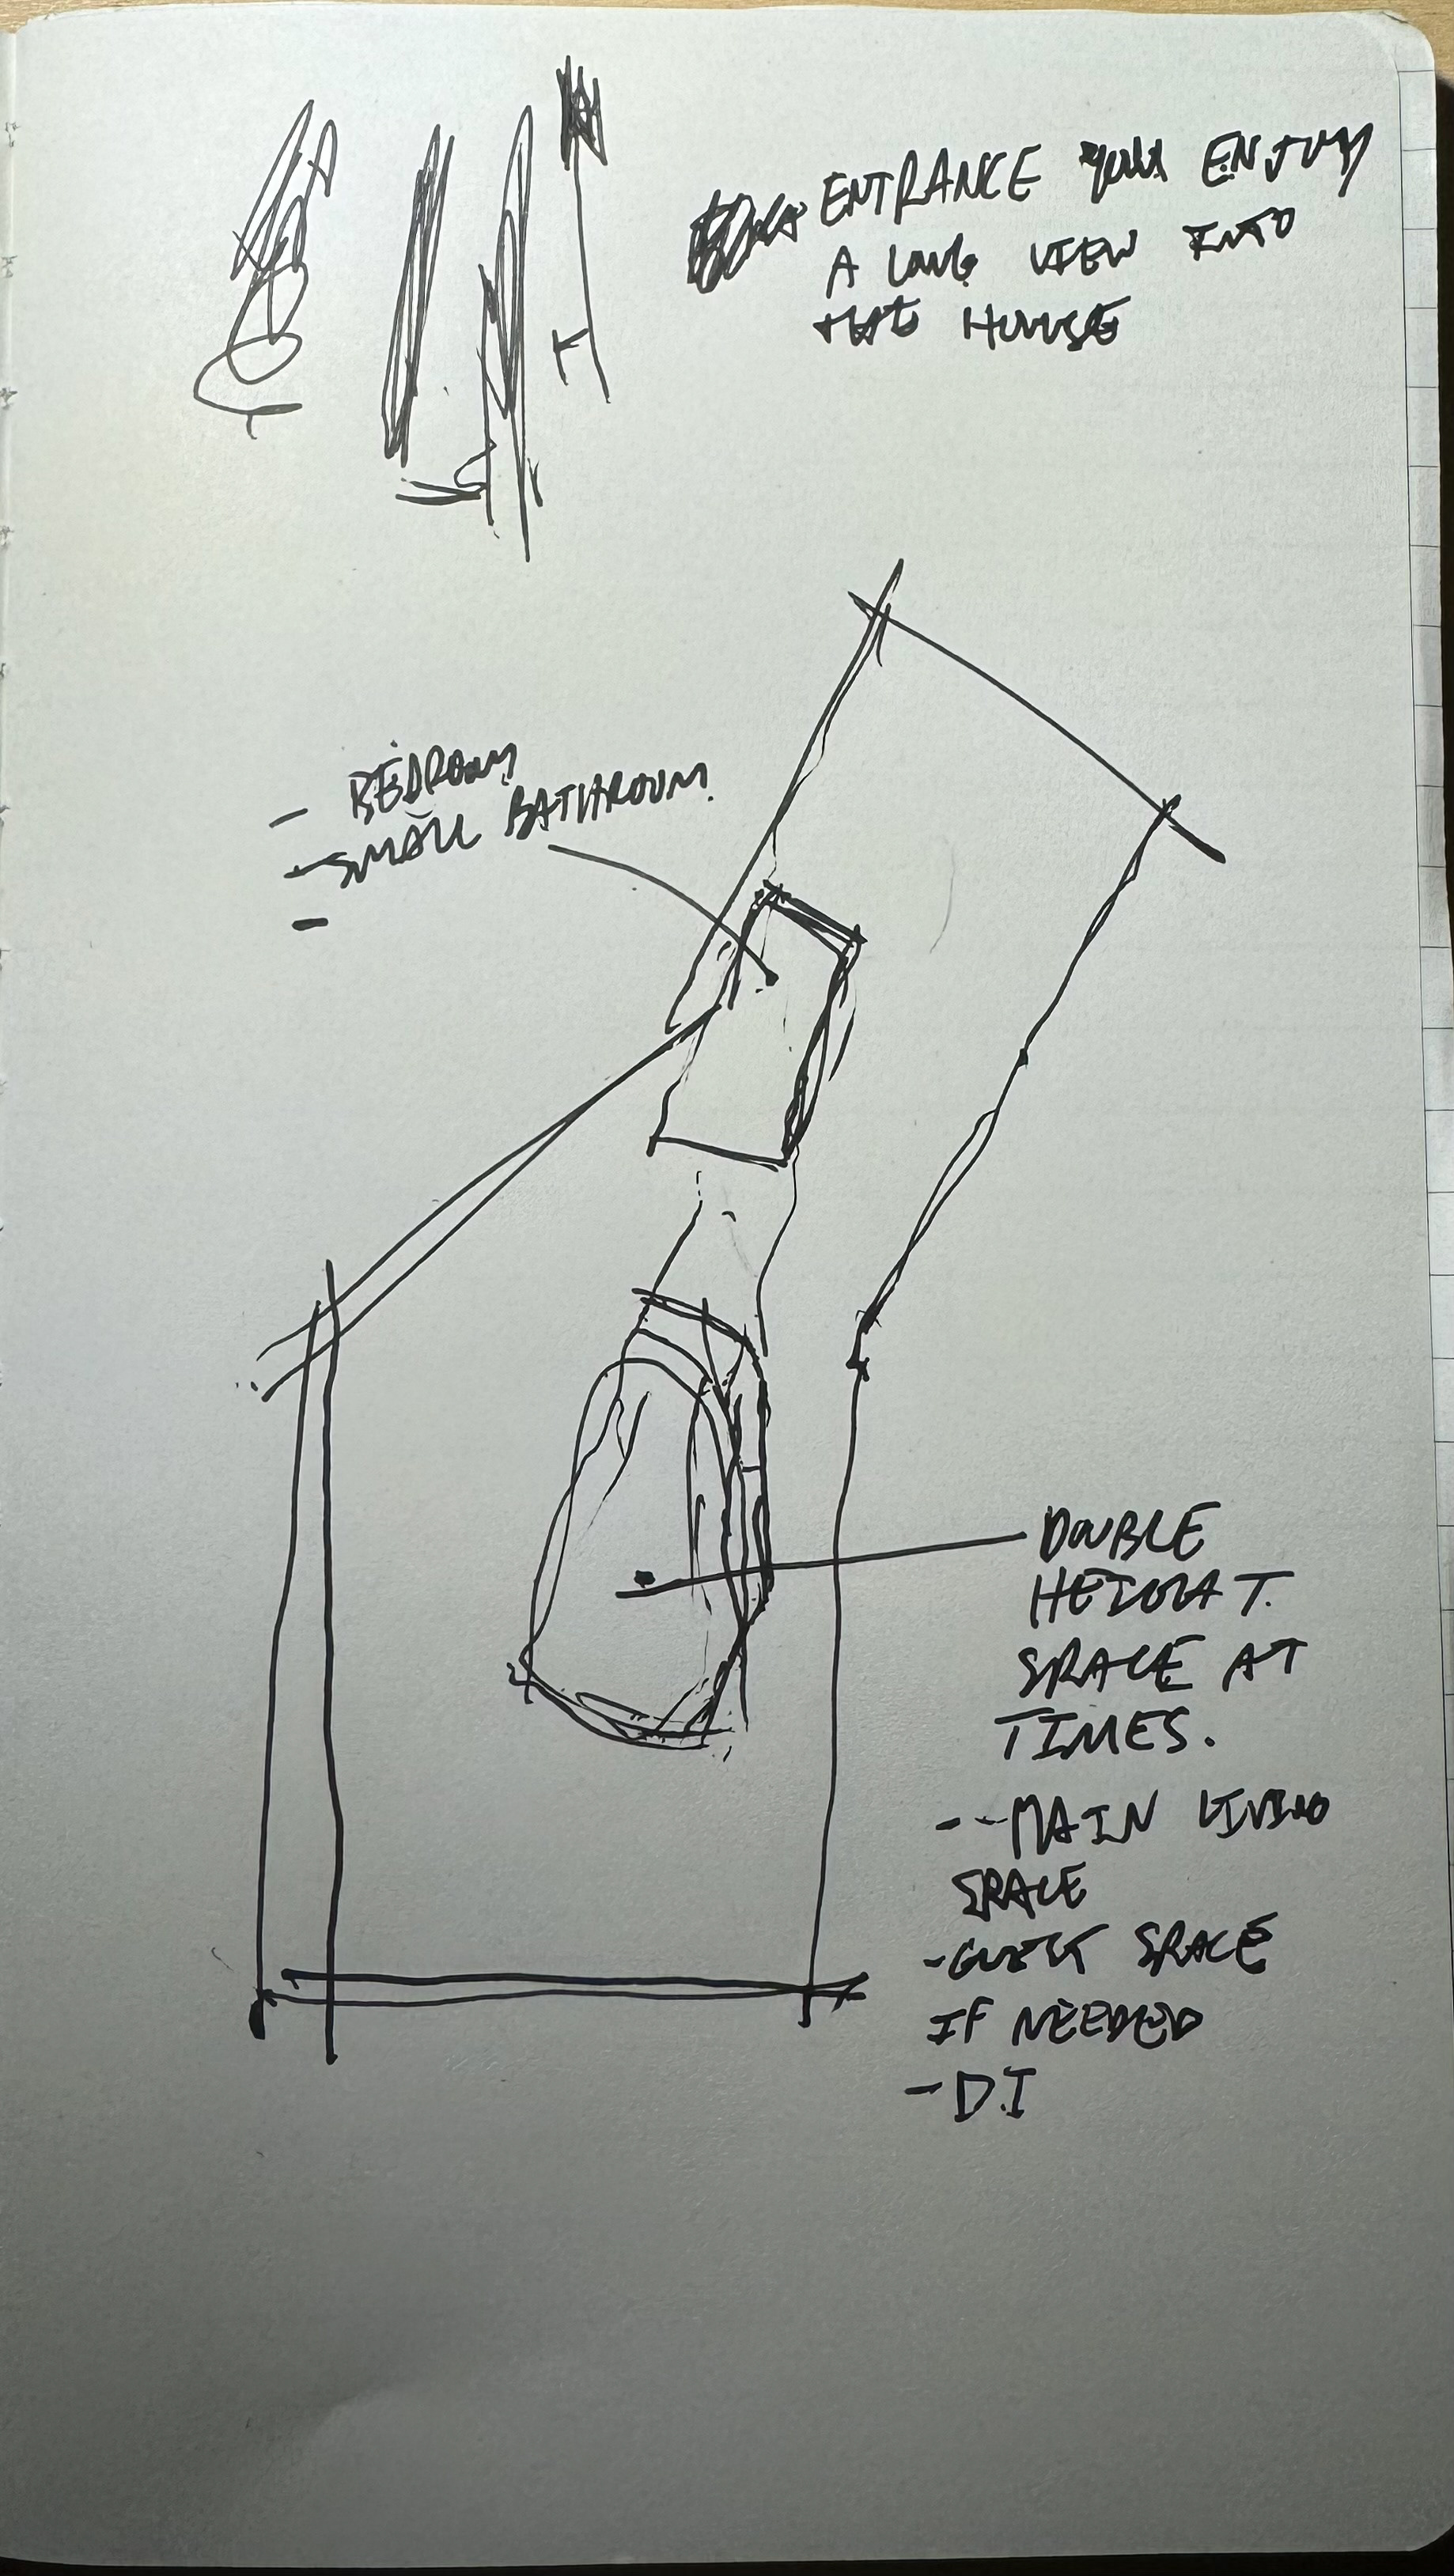 ENTRANCE YOU ENJOY
A LONG VIEW INTO
THE HOUSE
- BEDROOM
- SMALL BATHROOM.
-
DOUBLE
HEIGHT.
SPACE AT
TIMES.
- - MAIN LIVING
SPACE
- GUEST SPACE
IF NEEDED
- DI